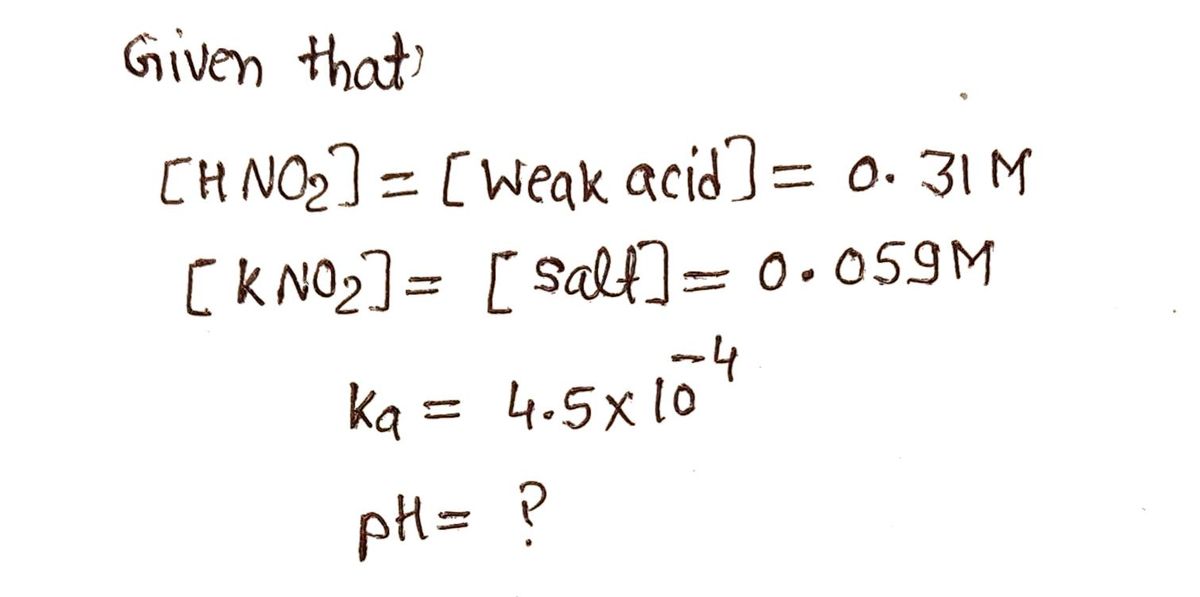 Given that,
[HNO₂] = [Weak acid] = 0.31 M
[KNO₂] = [salt] = 0.059M
Ka = 4.5 x 10⁻⁴
pH = ?